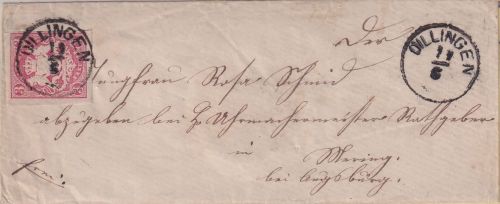 DILLINGEN
11
6
DILLINGEN
11
6
Der
Jungfrau Rosa Schmid
abzugeben bei H. Uhrmachermeister Rathgeber
in
Mering.
bei Augsburg.
frei.